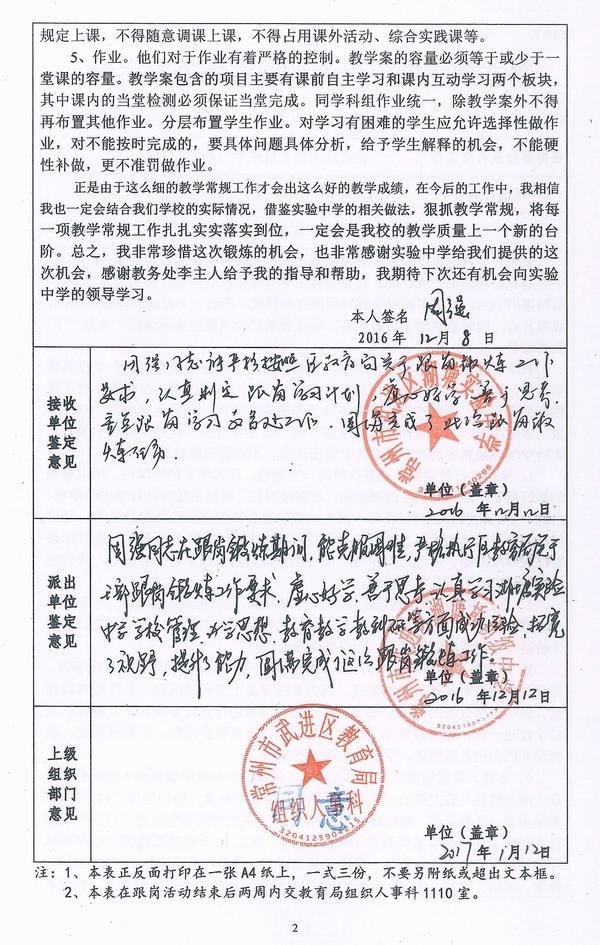 规定上课，不得随意调课上课，不得占用课外活动、综合实践课等。
5、作业。他们对于作业有着严格的控制。教学案的容量必须等于或少于一
堂课的容量。教学案包含的项目主要有课前自主学习和课内互动学习两个板块，
其中课内的当堂检测必须保证当堂完成。同学科组作业统一，除教学案外不得
再布置其他作业。分层布置学生作业。对学习有困难的学生应允许选择性做作
业，对不能按时完成的，要具体问题具体分析，给予学生解释的机会，不能硬
性补做，更不准罚做作业。
正是由于这么细的教学常规工作才会出这么好的教学成绩，在今后的工作中，我相信
我也一定会结合我们学校的实际情况，借鉴实验中学的相关做法，狠抓教学常规，将每
一项教学常规工作扎扎实实落实到位，一定会是我校的教学质量上一个新的台
阶。总之，我非常珍惜这次锻炼的机会，也非常感谢实验中学给我们提供的这
次机会，感谢教务处李主人给予我的指导和帮助，我期待下次还有机会向实验
中学的领导学习。
本人签名 周强
2016 年 12 月 8 日
接收
单位
鉴定
意见
周强同志能严格按照区教育局关于跟岗锻炼工作
要求，认真制定跟岗学习计划，虚心好学，善于思考，
跟岗学习 工作，圆满完成了此次跟岗锻
炼任务。
单位（盖章）
2016 年 12 月 12 日
派出
单位
鉴定
意见
周强同志在跟岗锻炼期间，能克服困难，严格执行区教育局关于
干部跟岗锻炼工作要求，虚心好学，善于思考，认真学习湖塘实验
中学学校管理、办学思想、教育教学教科研等方面成功经验，拓宽
了视野，提升了能力，圆满完成了这次跟岗锻炼工作。
2016 年 12 月 12 日
上级
组织
部门
意见
常州市武进区教育局
同意
组织人事科
单位（盖章）
2017 年 1 月 12 日
注：1、本表正反面打印在一张 A4 纸上，一式三份，不要另附纸或超出文本框。
2、本表在跟岗活动结束后两周内交教育局组织人事科 1110 室。
2